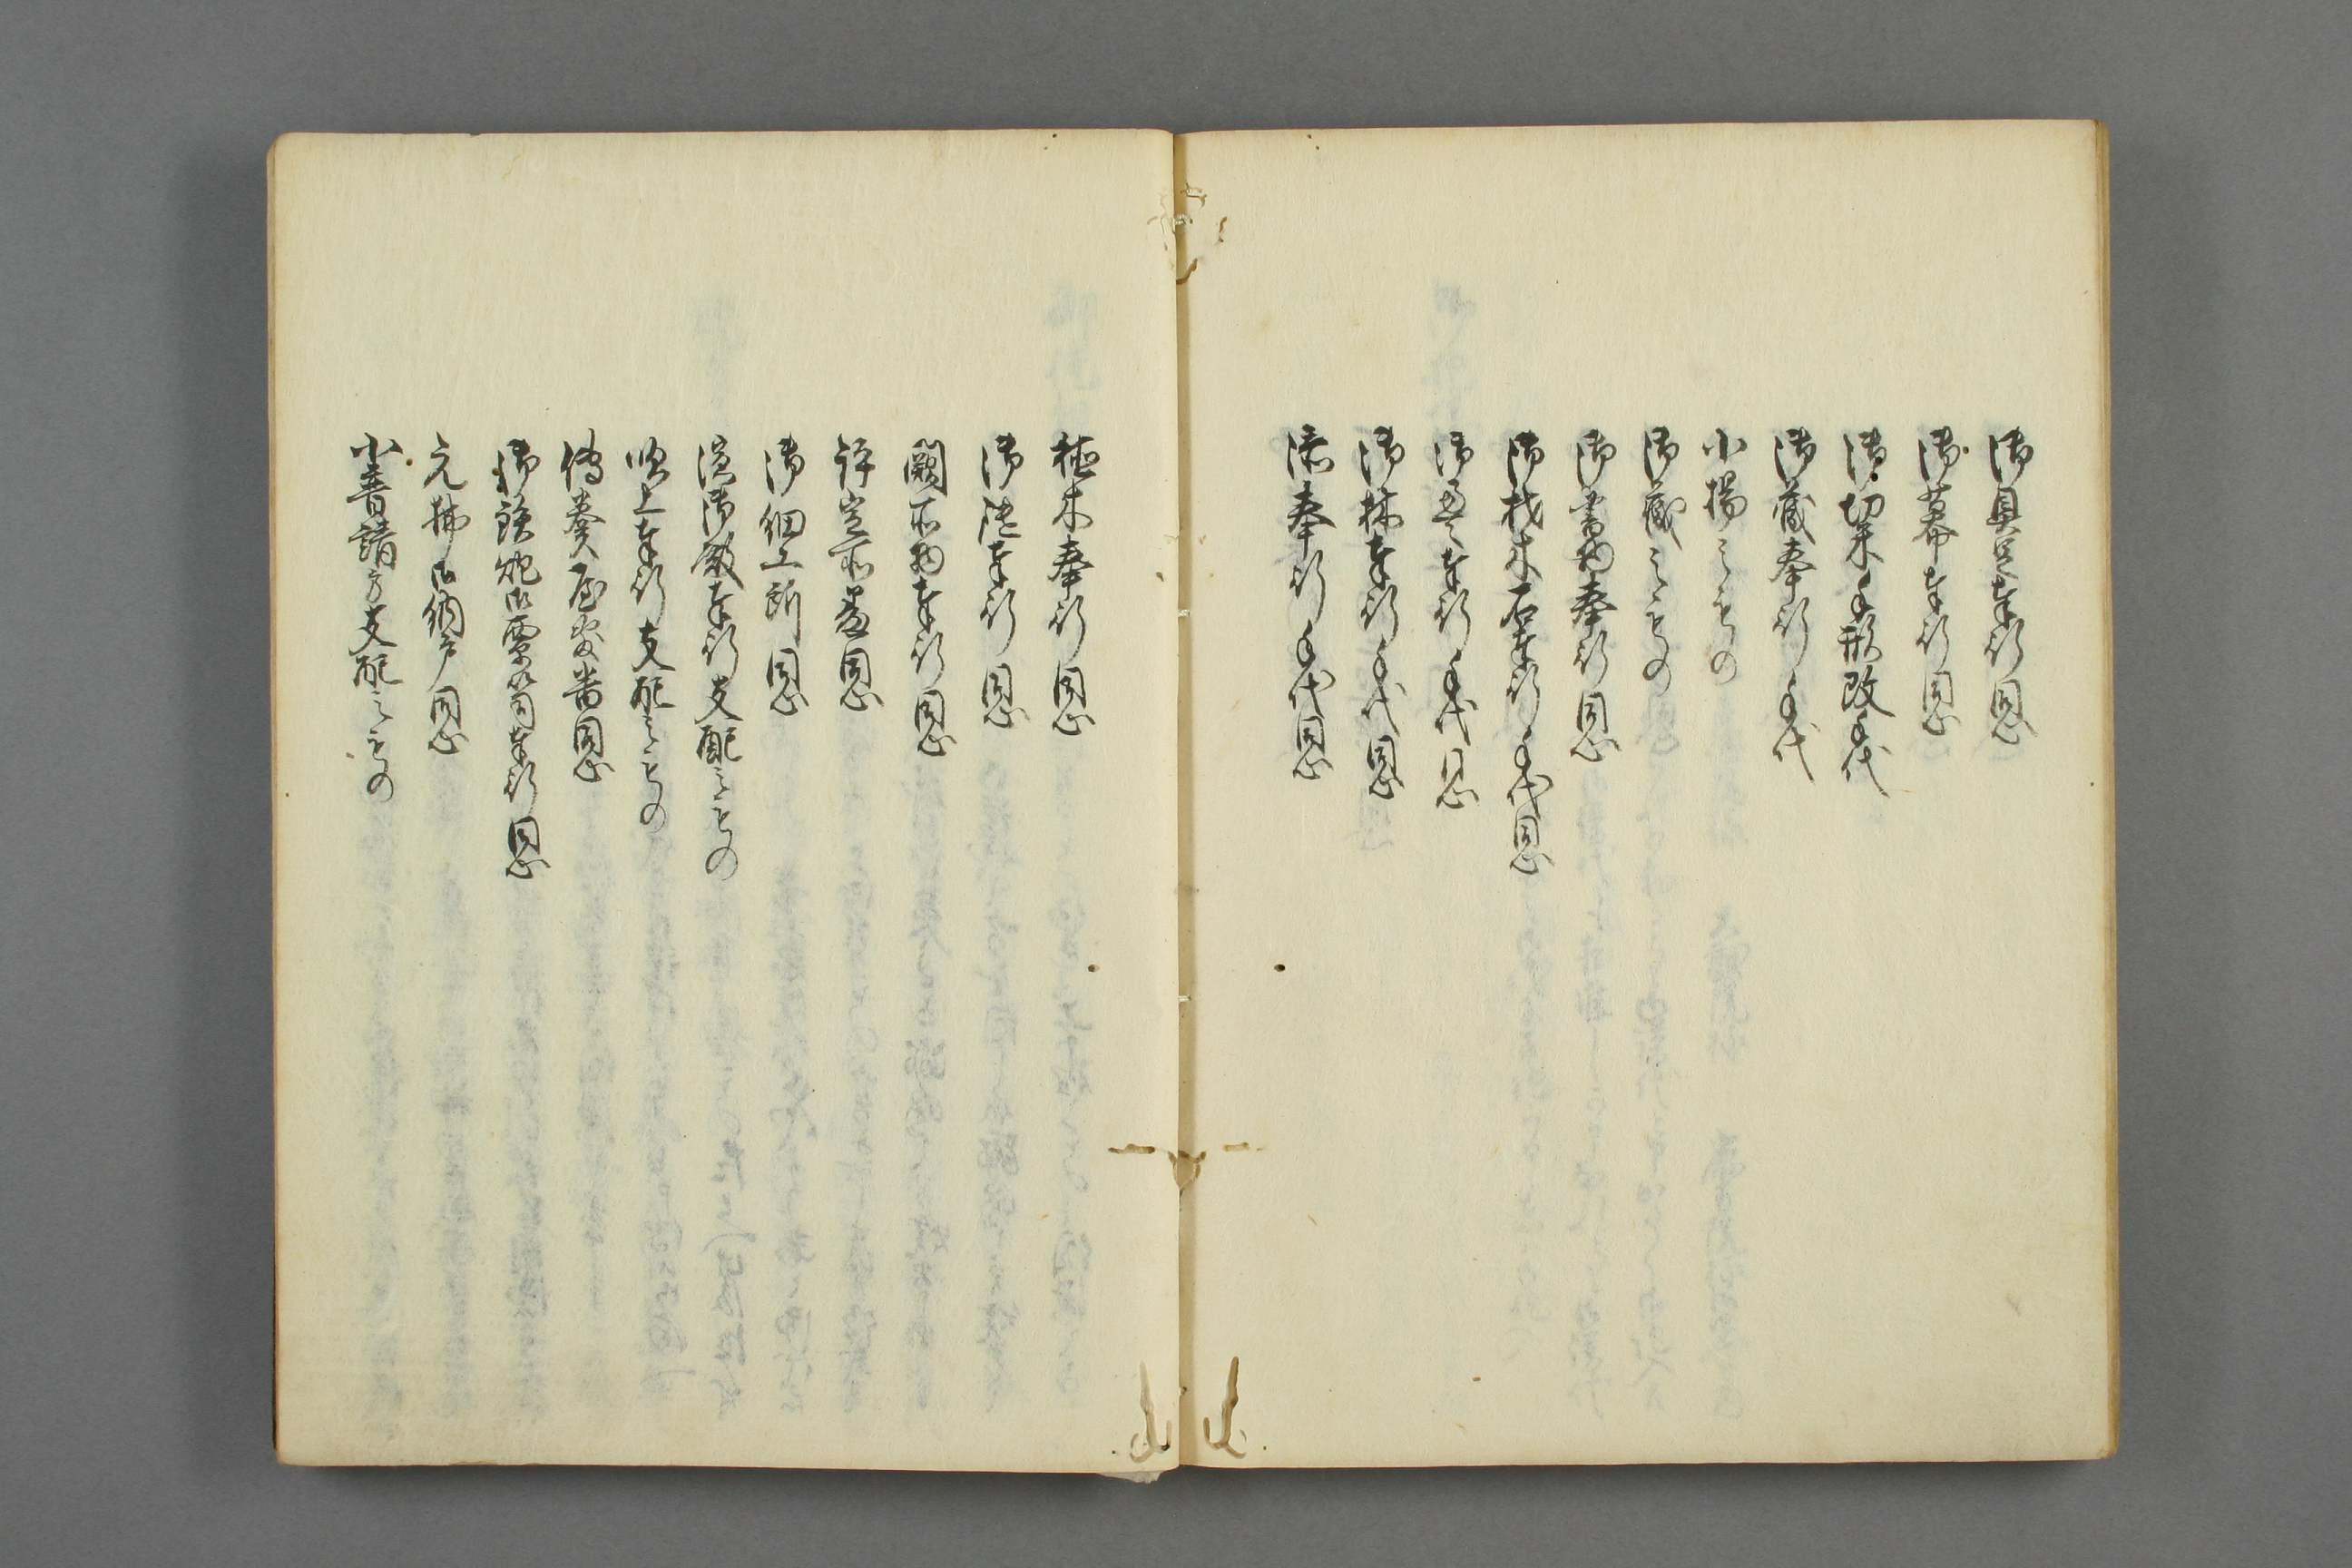 御具足奉行同心
御幕奉行同心
御切米手形改手代
御蔵奉行手代
小揚之もの
御蔵之もの
御書物奉行同心
御材木石奉行手代同心
御奉行手代同心
御林奉行手代同心
漆奉行手代同心
植木奉行同心
御奉行同心
闕所物奉行同心
評定所番同心
御細工所同心
濱御殿奉行支配之もの
吹上奉行支配之もの
傳奏屋敷番同心
御鉄炮御箪笥奉行同心
元払御納戸同心
小普請方支配之もの